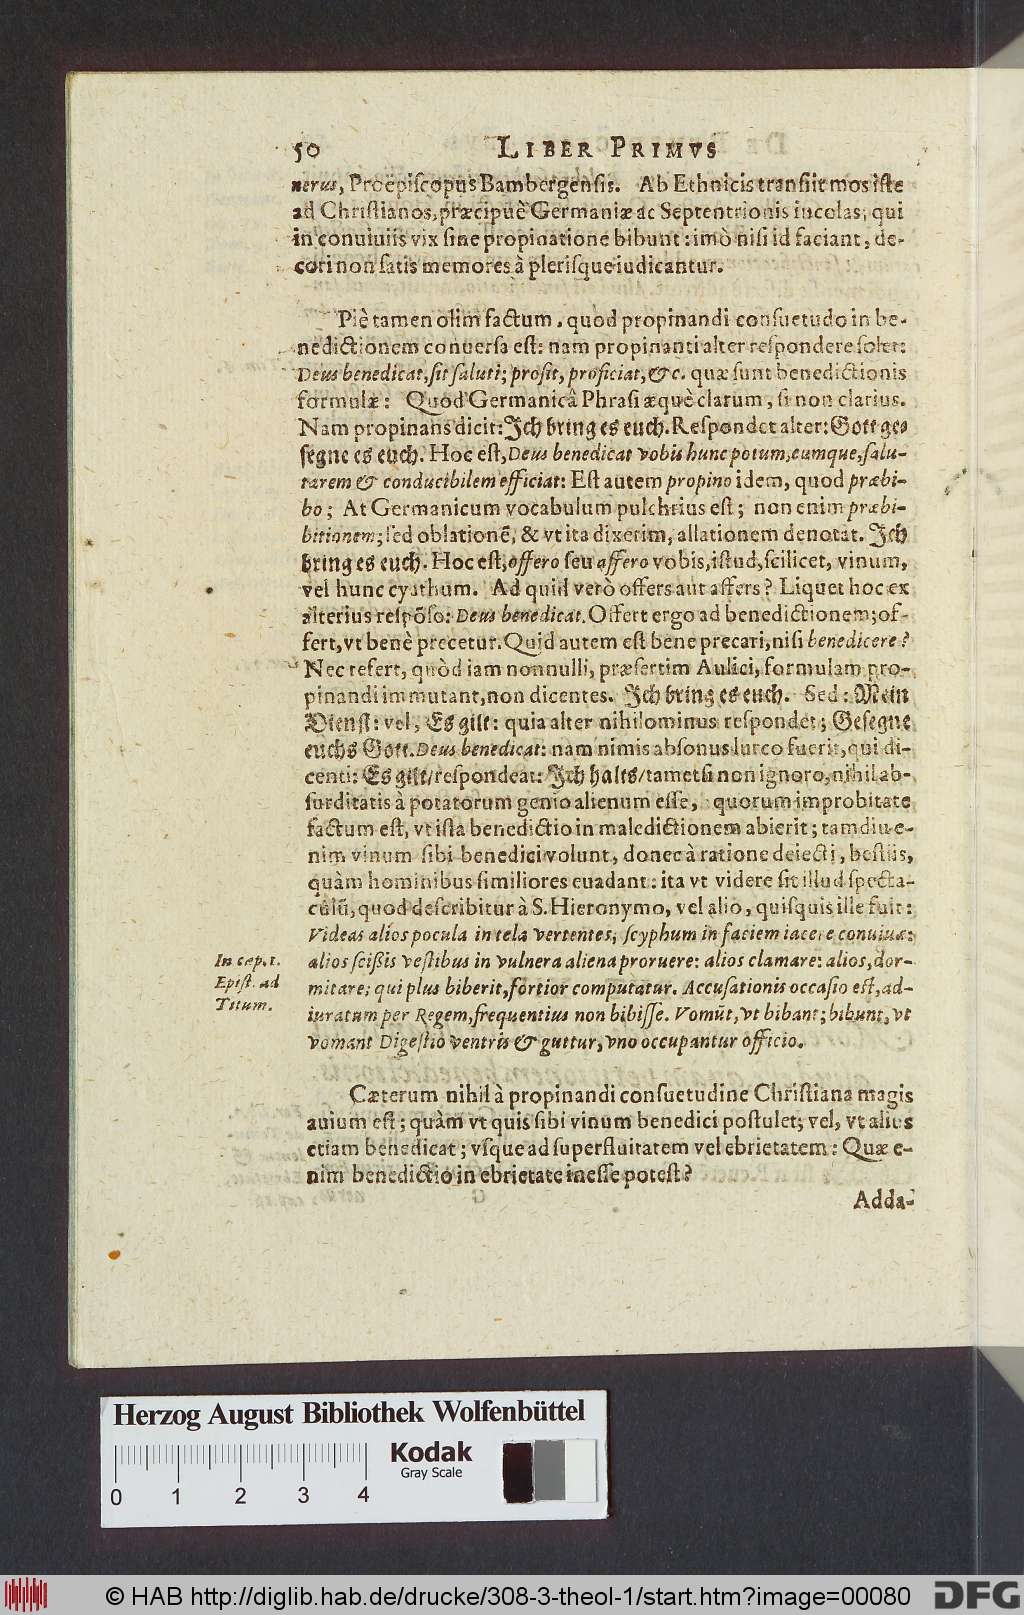 50 LIBER PRIMVS
nerus, Proëpiscopus Bambergensis. Ab Ethnicis transiit mos iste
ad Christianos, præcipuè Germaniæ ac Septentrionis incolas, qui
in conuiuiis vix sine propinatione bibunt: imò nisi id faciant, de-
cori non satis memores à plerisque iudicantur.
Piè tamen olim factum, quod propinandi consuetudo in be-
nedictionem conuersa est: nam propinanti alter respondere solet:
Deus benedicat, sit saluti; prosit, proficiat, &c. quæ sunt benedictionis
formulæ: Quod Germanicâ Phrasi æquè clarum, si non clarius.
Nam propinans dicit: Ich bring es euch. Respondet alter: Gott ge-
segne es euch. Hoc est, Deus benedicat vobis hunc potum, eumque, salu-
tarem & conducibilem efficiat: Est autem propino idem, quod præbi-
bo; At Germanicum vocabulum pulchrius est; non enim præbi-
bitionem; sed oblationē, & vt ita dixerim, allationem denotat. Ich
bring es euch. Hoc est, offero seu affero vobis, istud, scilicet, vinum,
vel hunc cyathum. Ad quid verò offers aut affers? Liquet hoc ex
alterius respōso: Deus benedicat. Offert ergo ad benedictionem; of-
fert, vt benè precetur. Quid autem est bene precari, nisi benedicere?
Nec refert, quòd iam nonnulli, præsertim Aulici, formulam pro-
pinandi immutant, non dicentes. Ich bring es euch. Sed: Mein
Dienst: vel, Es gilt: quia alter nihilominus respondet; Gesegne
euchs Gott. Deus benedicat: nam nimis absonus lurco fuerit, qui di-
centi: Es gilt/ respondeat: Ich halts/ tametsi non ignoro, nihil ab-
surditatis à potatorum genio alienum esse, quorum improbitate
factum est, vt ista benedictio in maledictionem abierit; tamdiu e-
nim vinum sibi benedici volunt, donec à ratione deiecti, bestiis,
quàm hominibus similiores euadant: ita vt videre sit illud specta-
culū, quod describitur à S. Hieronymo, vel alio, quisquis ille fuit:
Videas alios pocula in tela vertentes, scyphum in faciem iacere conuiuæ:
In cap. 1.
Epist. ad
Titum.
alios scißis vestibus in vulnera aliena proruere: alios clamare: alios, dor-
mitare; qui plus biberit, fortior computatur. Accusationis occasio est, ad-
iuratum per Regem, frequentius non bibisse. Vomūt, vt bibant; bibunt, vt
vomant Digestio ventris & guttur, vno occupantur officio.
Cæterum nihil à propinandi consuetudine Christiana magis
auium est; quàm vt quis sibi vinum benedici postulet; vel, vt alius
etiam benedicat; vsque ad superfluitatem vel ebrietatem: Quæ e-
nim benedictio in ebrietate inesse potest?
Adda-
Herzog August Bibliothek Wolfenbüttel
Kodak
Gray Scale
0 1 2 3 4
© HAB http://diglib.hab.de/drucke/308-3-theol-1/start.htm?image=00080
DFG